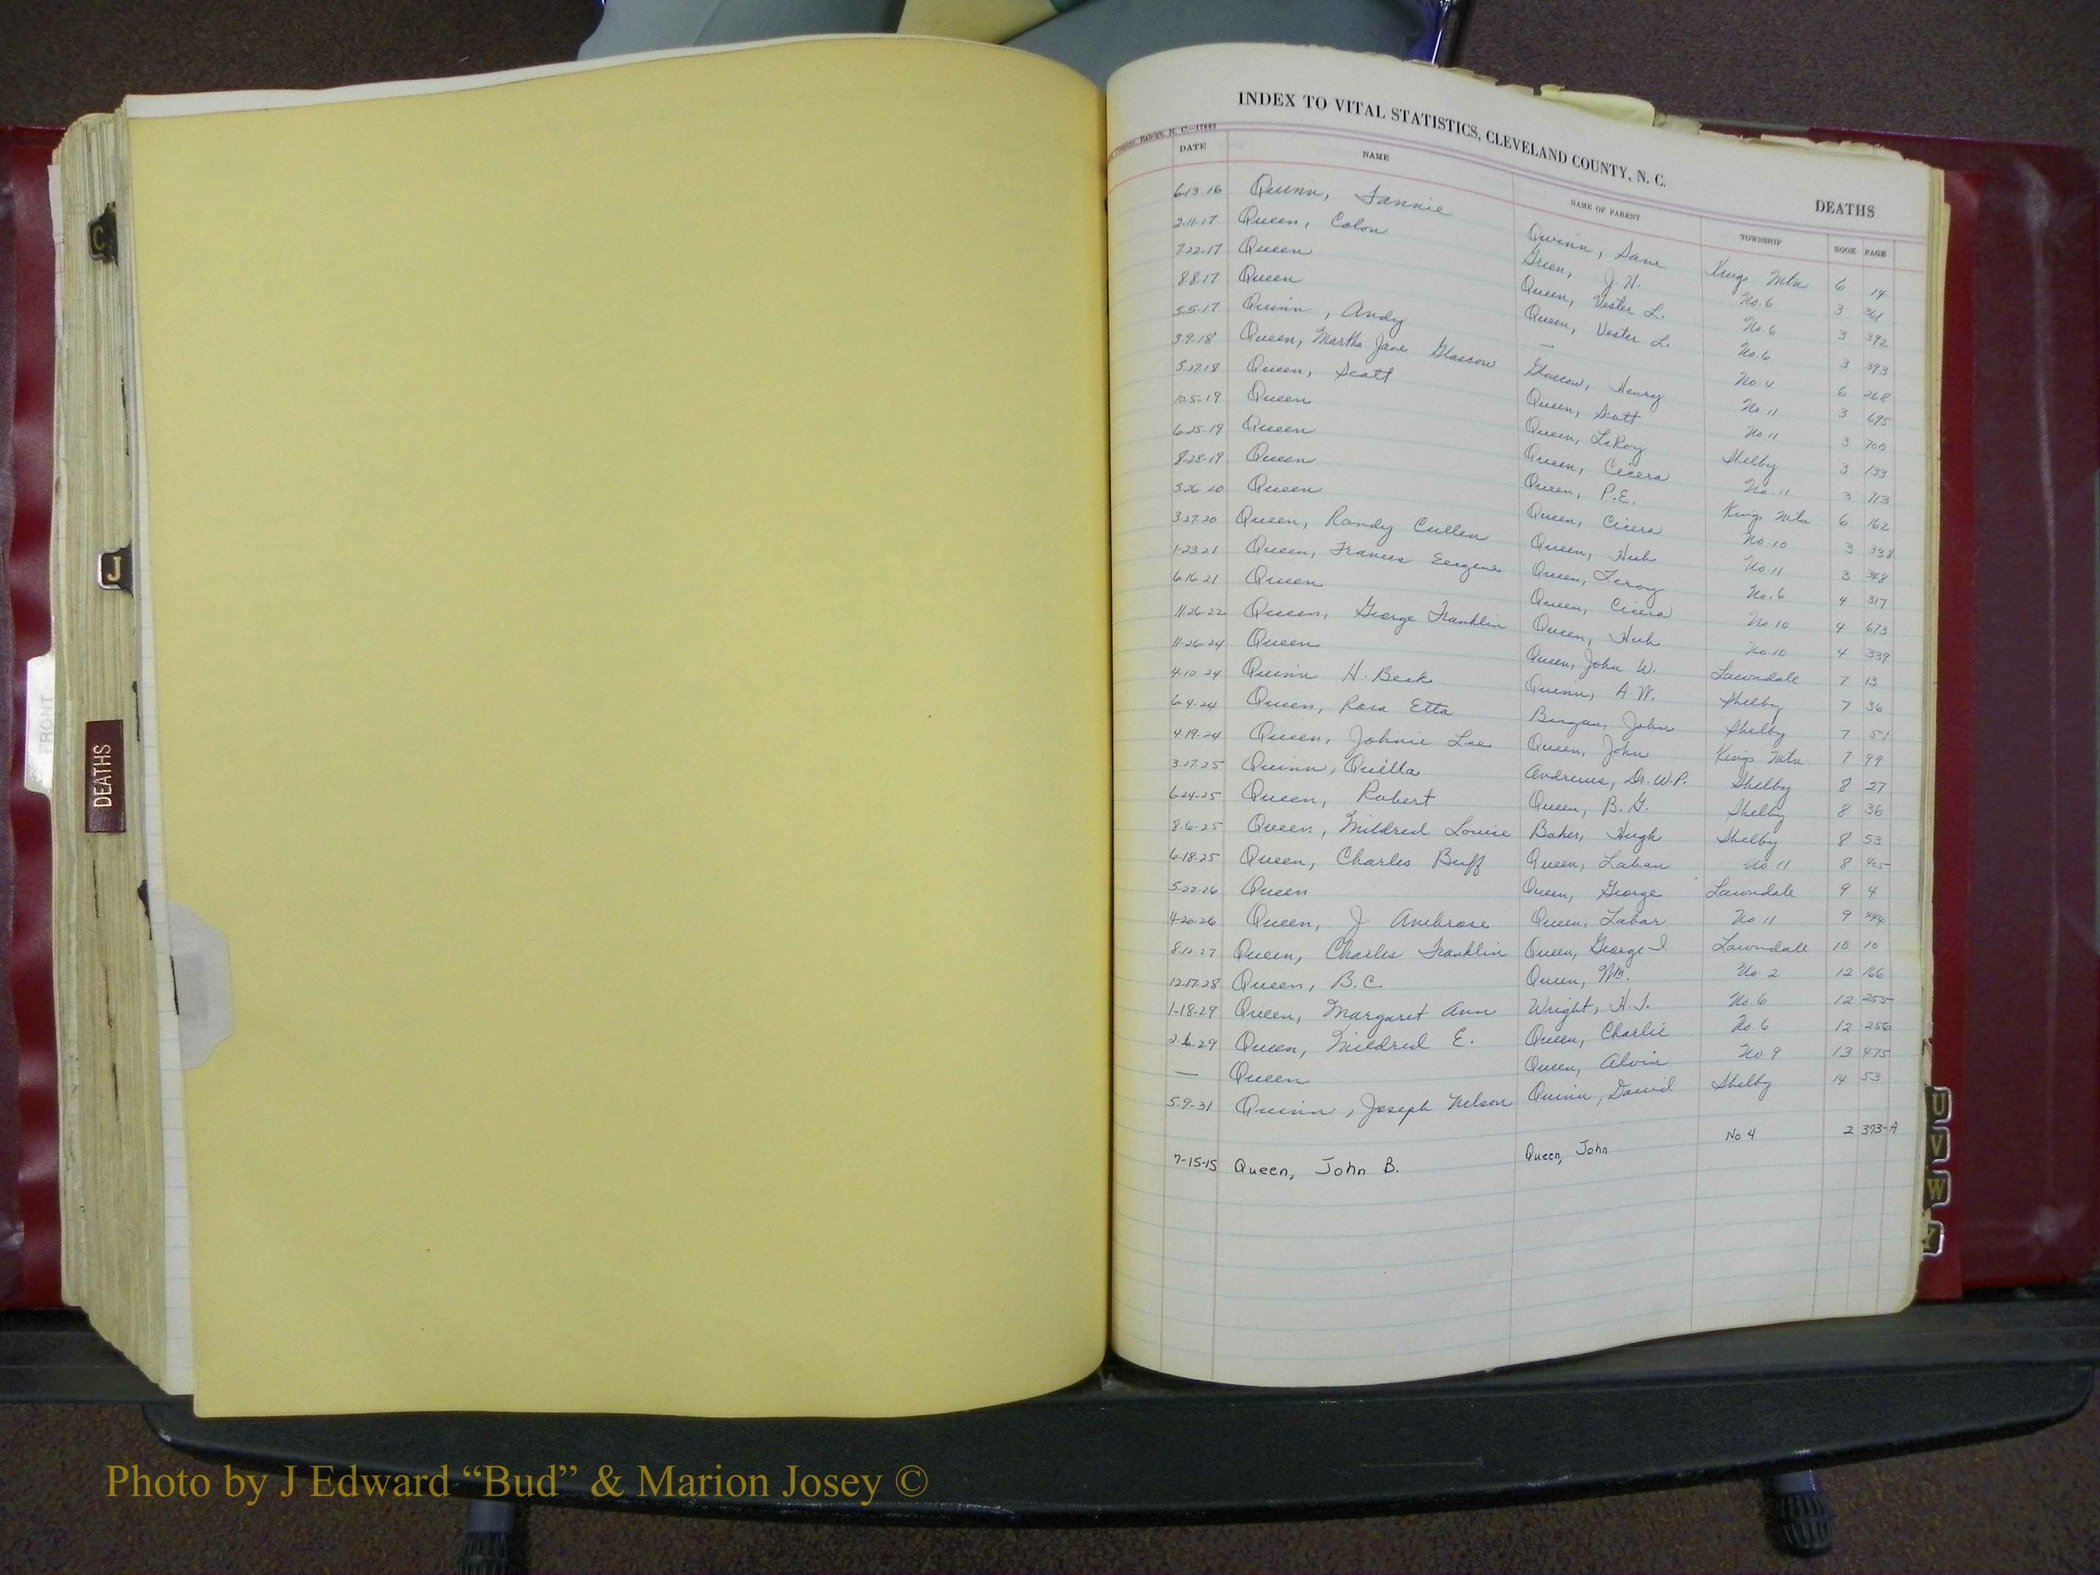 INDEX TO VITAL STATISTICS, CLEVELAND COUNTY, N. C.
DEATHS
Raleigh, N. C.—17883
DATE NAME NAME OF PARENT TOWNSHIP BOOK PAGE
6-13-16 Quinn, Fannie Quinn, Kings Mtn 6 14
2-11-17 Queen, Colon Green, J. H. No. 6 3 361
7-22-17 Queen Queen, Vester L. No. 6 3 392
8-8-17 Queen Queen, Vester L. No. 6 3 393
5-5-17 Quinn, Andy — No 4 6 268
3-9-18 Queen, Martha Jane Glascow Glascow, Henry No 11 3 695
5-27-18 Queen, Scott Queen, Scott No 11 3 700
10-5-19 Queen Queen, LeRoy Shelby 3 133
6-25-19 Queen Queen, Cicero No. 11 3 713
8-28-19 Queen Queen, P.E. Kings Mtn 6 162
3-26-20 Queen Queen, Cicero No. 10 3 338
3-27-20 Queen, Randy Cullen Queen, Hub No 11 3 348
1-23-21 Queen, Frances Eugene Queen, Leroy No. 6 4 317
6-16-21 Queen Queen, Cicero No 10 4 673
11-26-22 Queen, George Franklin Queen, Hub No 10 4 339
11-26-24 Queen Queen, John W. Lawndale 7 13
4-10-24 Quinn H. Beck Quinn, A W. Shelby 7 36
6-4-24 Queen, Rosa Etta John Shelby 7 51
4-19-24 Queen, Johnie Lee Queen, John Kings Mtn 7 99
3-17-25 Quinn, Quilla Andrews, Dr. W.P. Shelby 8 27
6-24-25 Queen, Robert Queen, B. G. Shelby 8 36
8-6-25 Queen, Mildred Louise Baker, Hugh Shelby 8 53
6-18-25 Queen, Charles Buff Queen, Laban No. 11 8 495
5-22-26 Queen Queen, George Lawndale 9 4
4-20-26 Queen, J Ambrose Queen, Labar No. 11 9 444
8-12-27 Queen, Charles Franklin Queen, George I Lawndale 10 10
12-17-28 Queen, B.C. Queen, Wm. No. 2 12 166
1-18-29 Queen, Margaret Ann Wright, H.T. No. 6 12 255
2-6-29 Queen, Mildred E. Queen, Charlie No. 6 12 256
— Queen Queen, Alvin No 9 13 475
5-9-31 Quinn, Joseph Nelson Quinn, David Shelby 14 53
7-15-15 Queen, John B. Queen, John No 4 2 373-A
C
J
FRONT
DEATHS
U
V
W
Y
Photo by J Edward “Bud” & Marion Josey ©